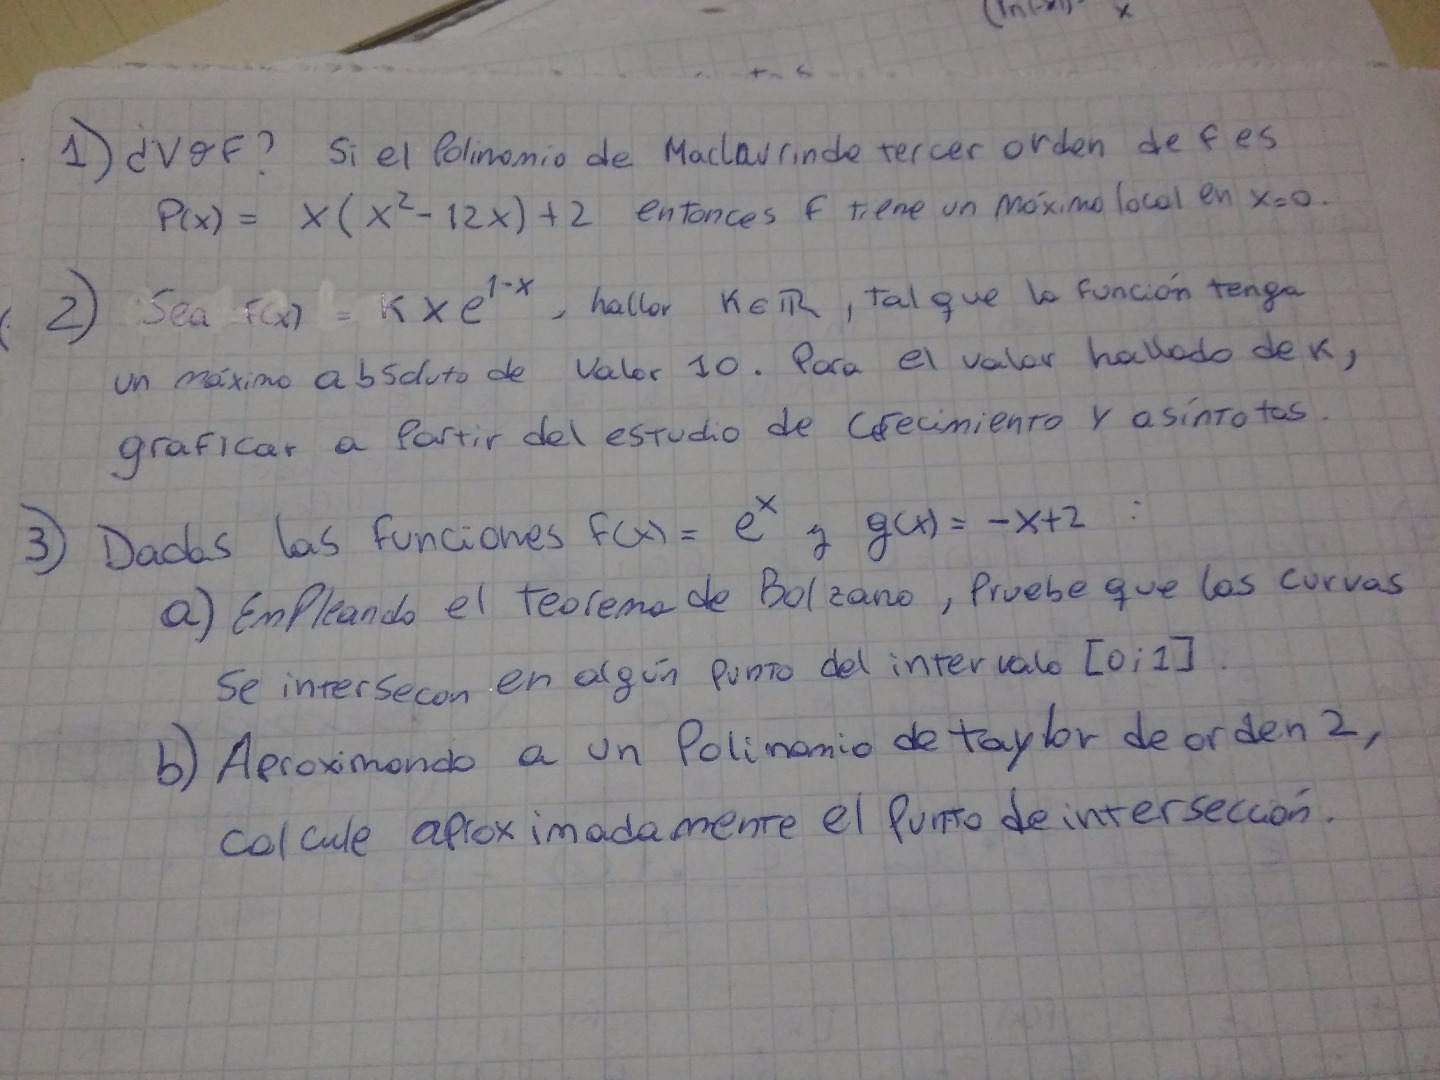 (ln(-x))
x
1) ¿V o F? Si el Polinomio de Maclaurin de tercer orden de f es
P(x) = x(x² - 12x) + 2 entonces f tiene un máximo local en x=0.
2) Sea f(x) = K x e^{1-x}, hallar K ∈ ℝ, tal que la función tenga
un máximo absoluto de valor 10. Para el valor hallado de K,
graficar a partir del estudio de crecimiento y asíntotas.
3) Dadas las funciones f(x) = e^x y g(x) = -x+2 :
a) Empleando el teorema de Bolzano, pruebe que las curvas
se intersecan en algún punto del intervalo [0;1].
b) Aproximando a un Polinomio de taylor de orden 2,
calcule aproximadamente el punto de intersección.